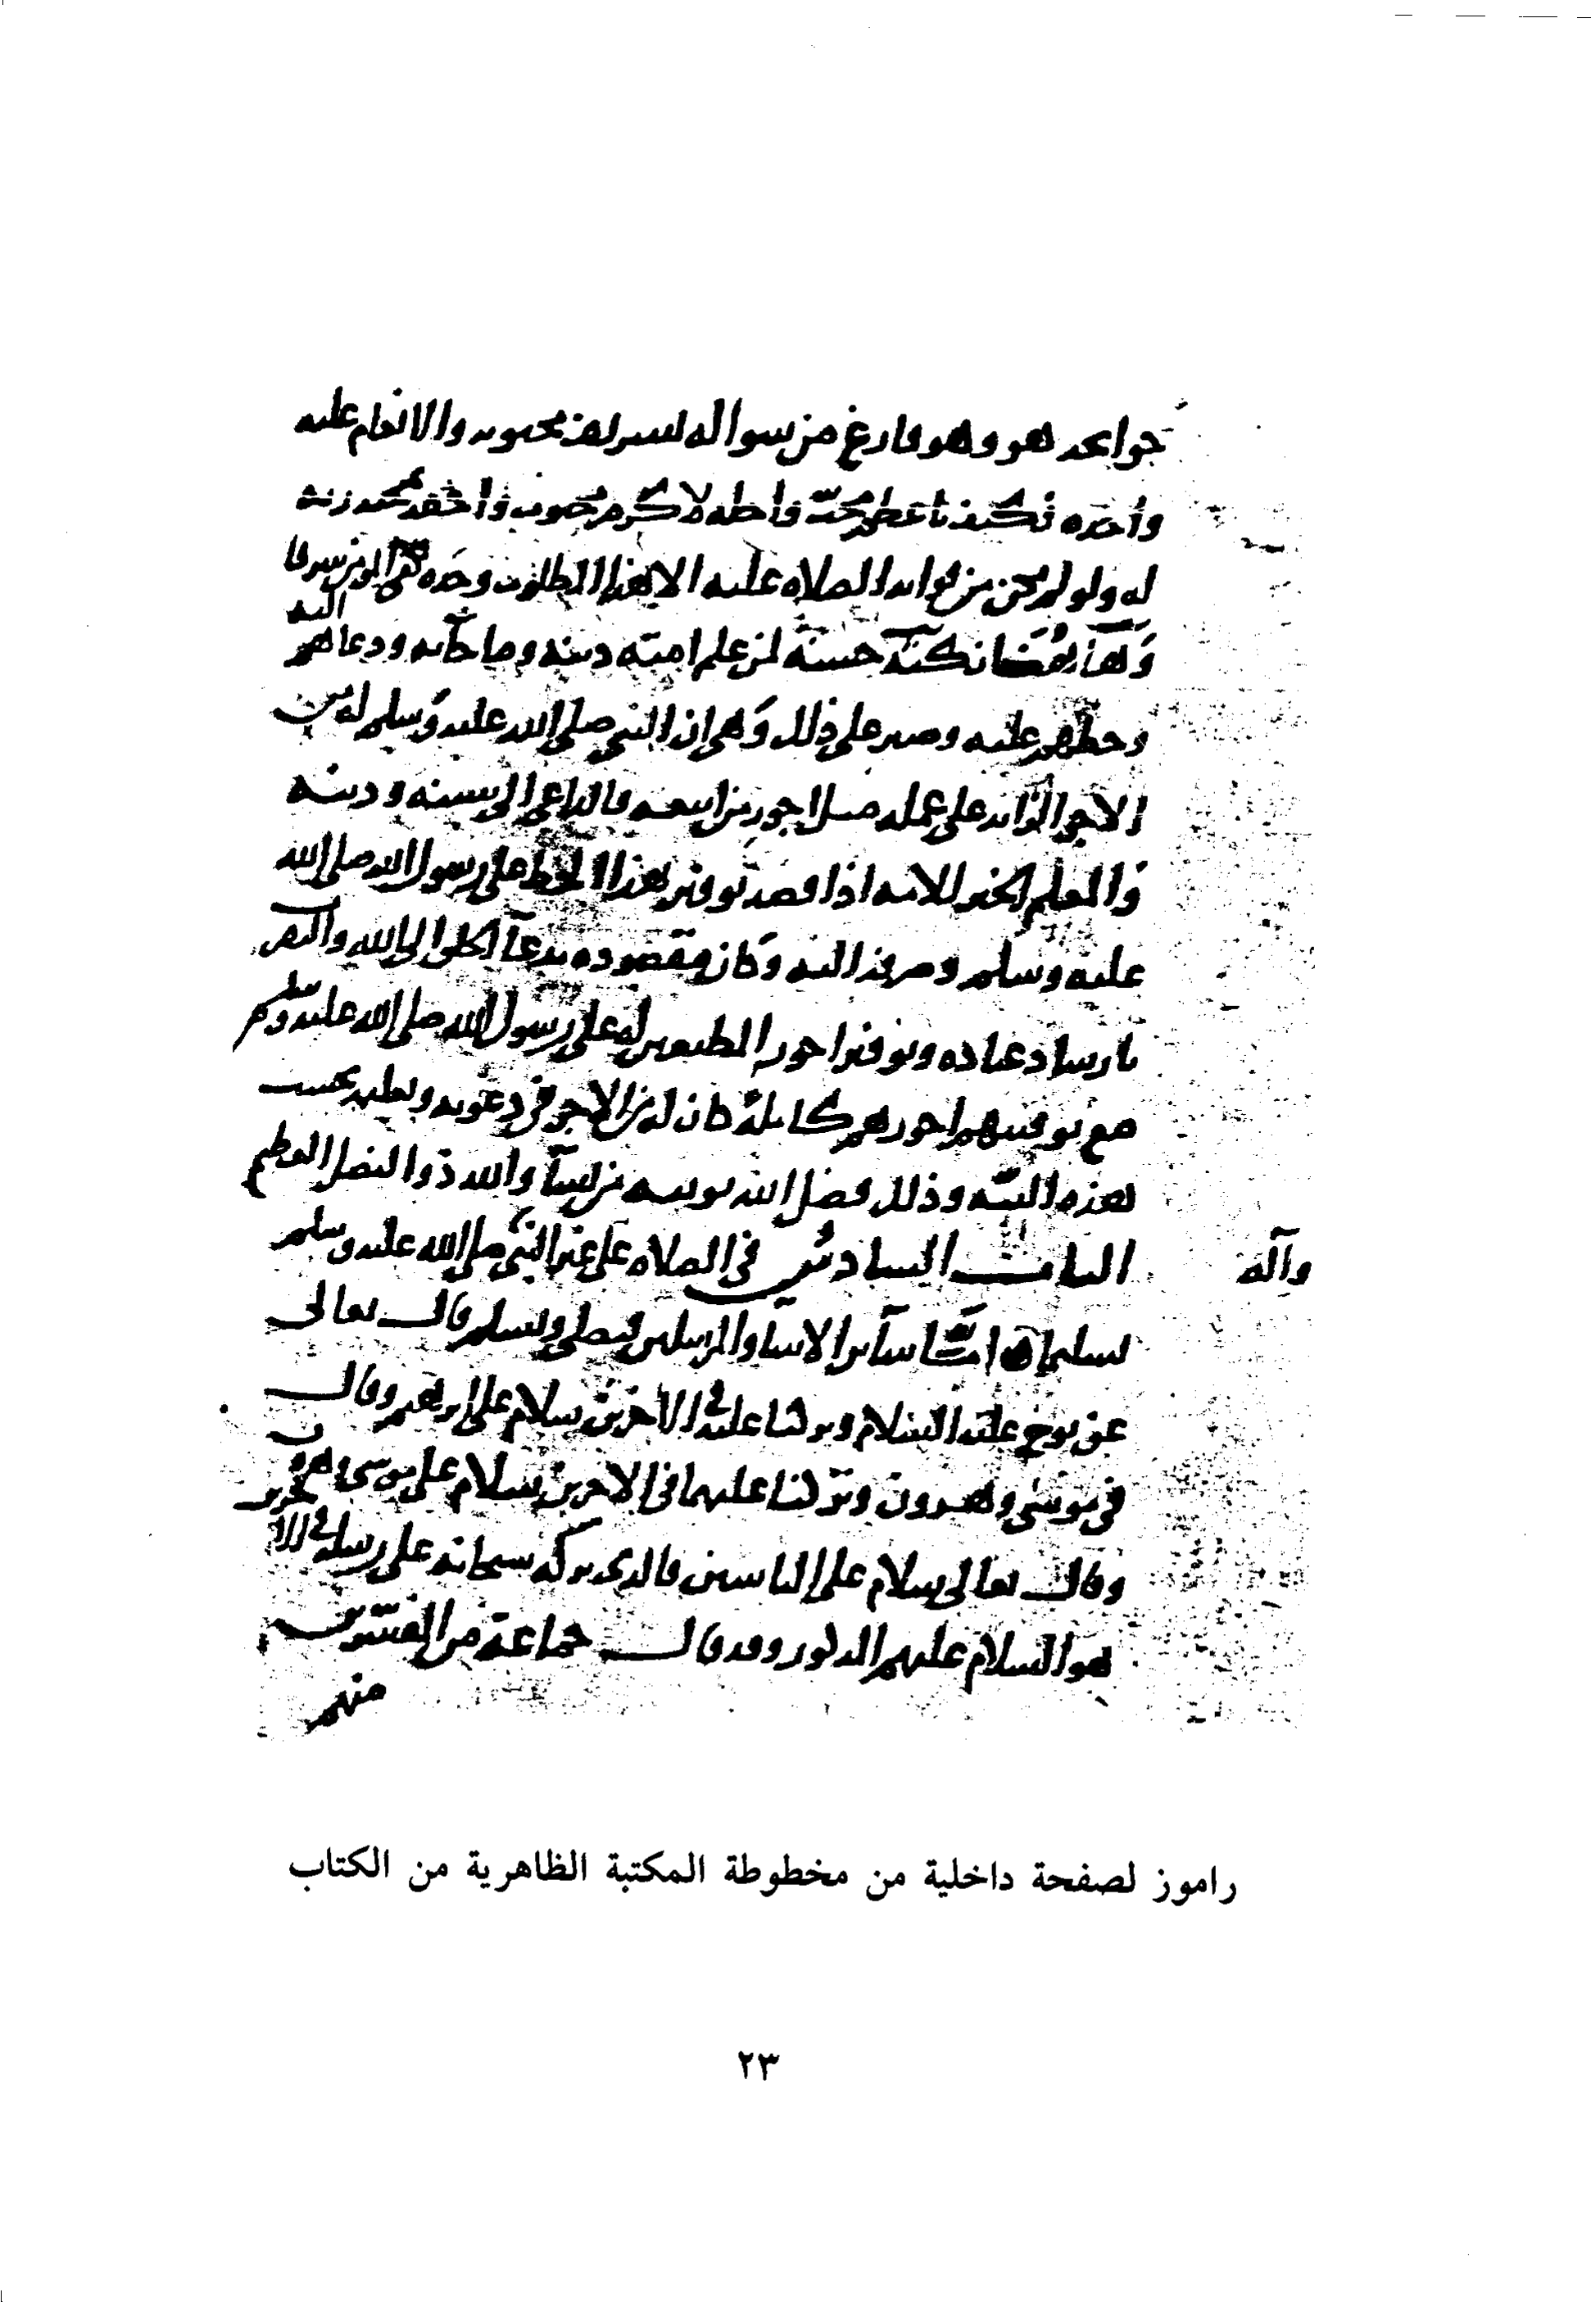 حوائجه هو وهو فارغ من سواله لتشريف محبوبه والانعام عليه
واحده فكيف باعظم محب واجله لاكرم محبوب واحقه بمحبه ربه
له ولو لم يكن من فوايد الصلاه عليه الا هذا المطلوب وحده لكفى المومن شرفا
وهاهنا نكتة حسنة لمن علم امته دينه وما جاهم به ودعاهم اليه
وحظهم عليه وصبر على ذلك وهي ان النبي صلى الله عليه وسلم له من
الاجر الزايد على عمله مثل اجور من اتبعه فالداعي الى سنته ودينه
والمعلم الخير للامه اذا قصد توفير هذا الحظ على رسول الله صلى الله
عليه وسلم وصرفه اليه وكان مقصوده بدعآ الخلق الى الله والتقرب
بارشاد عباده وتوفير اجور المطيعين له على رسول الله صلى الله عليه وسلم
مع توفيتهم اجورهم كاملة كان له من الاجر في دعوته وتعليمه بحسب
هذه النية وذلك فضل الله يوتيه من يشآ والله ذو الفضل العظيم
الباب السادس في الصلاه على غير النبي صلى الله عليه وسلم
وآله
تسليما امّا ساير الانبيا والمرسلين فيصلى ويسلم قال تعالى
عن نوح عليه السلام وتركنا عليه في الآخرين سلام على ابرهيم وقال
في موسى وهرون وتركنا عليهما في الاخرين سلام على موسى وهرون
وقال تعالى سلام على الياسين فالذي تركه سبحانه على رسله في الاخرين
هو السلام عليهم المذكور وقد قال جماعة من المفسرين
منهم
راموز لصفحة داخلية من مخطوطة المكتبة الظاهرية من الكتاب
٢٣